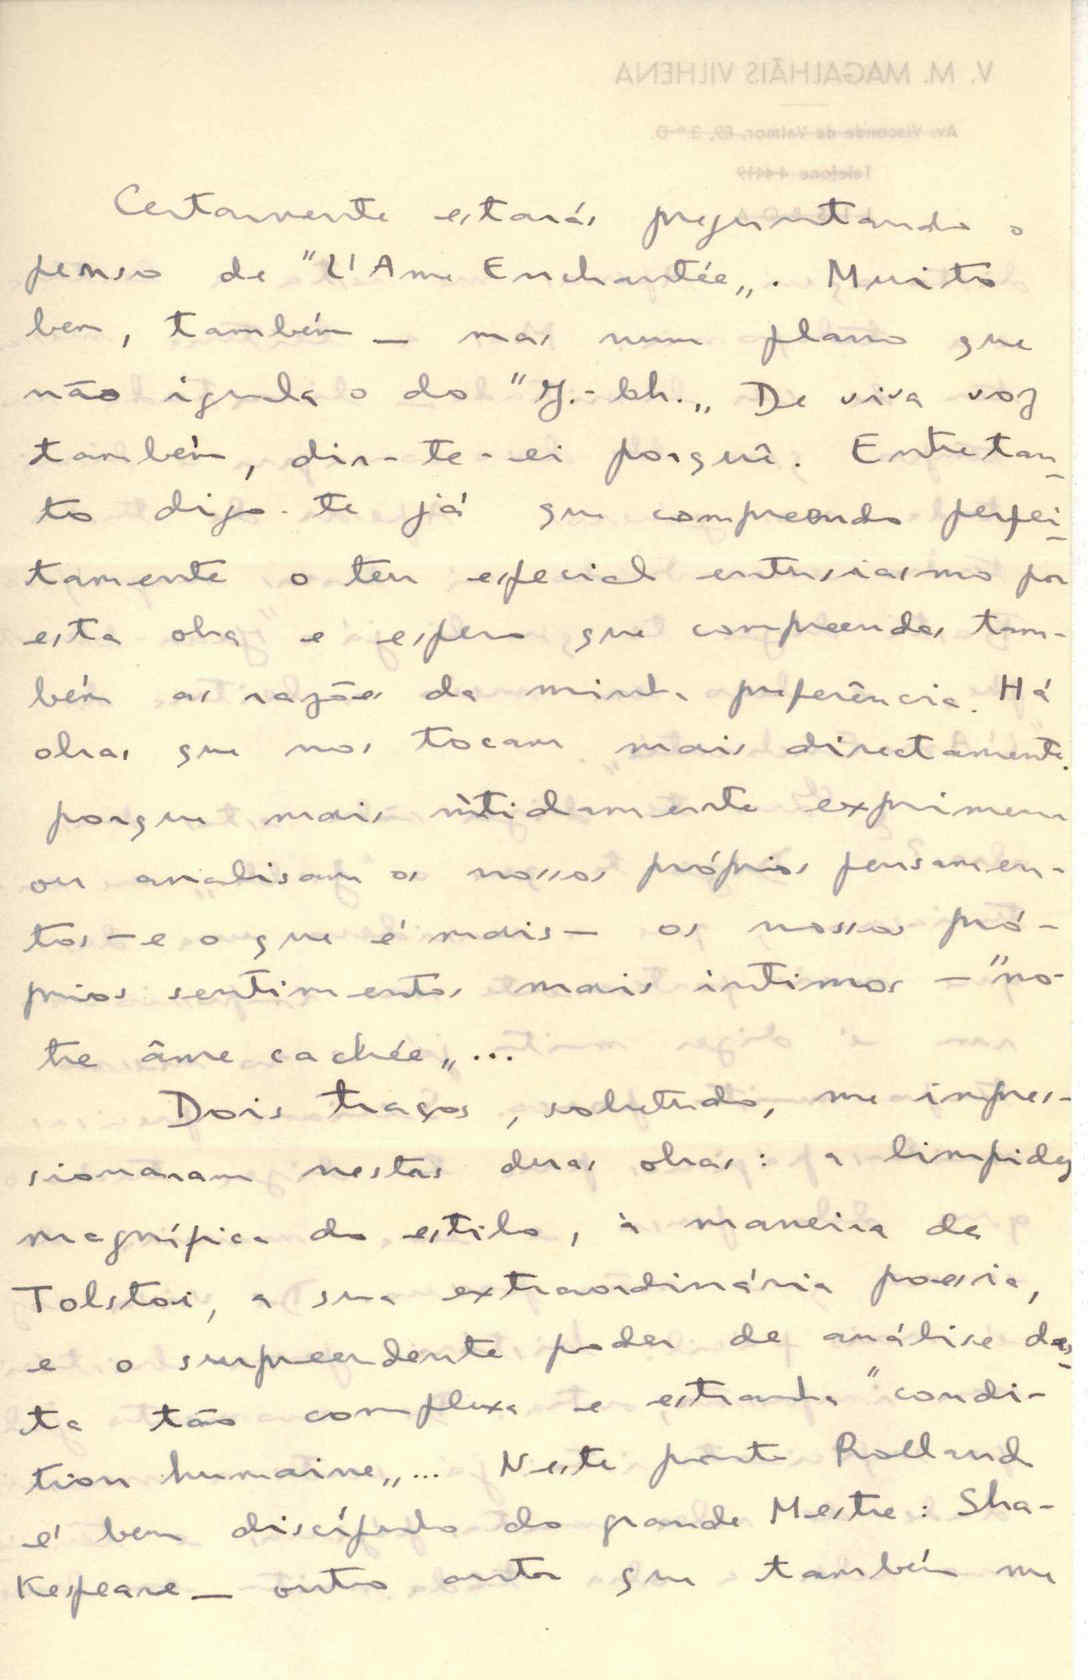 Certamente estarás preguntando o
penso de "L'Ame Enchantée„. Muito
bem, também — mas num plano que
não iguala o do "J.-Ch.„ De viva voz
também, dir-te-ei porquê. Entretan-
to digo-te já que compreendo perfei-
tamente o teu especial entusiasmo por
esta obra e espero que compreendas tam-
bém as razões da minha preferência. Há
obras que nos tocam mais directamente.
porque mais nìtidamente exprimem
ou analisam os nossos próprios pensamen-
tos — e o que é mais — os nossos pró-
prios sentimentos mais intimos — "no-
tre âme cachée„...
Dois traços, sobretudo, me impres-
sionaram nestas duas obras: a limpidez
magnífica do estilo, à maneira de
Tolstoi, a sua extraordinária poesia,
e o surpreendente poder de análise des-
ta tão complexa e estranha "condi-
tion humaine„... Neste ponto Rolland
é bem discípulo do grande Mestre: Sha-
kespeare — outro autor que também me
V. M. MAGALHÃIS VILHENA
Av. Visconde de Valmor, 89, 3.º D.
Telefone 4 4419